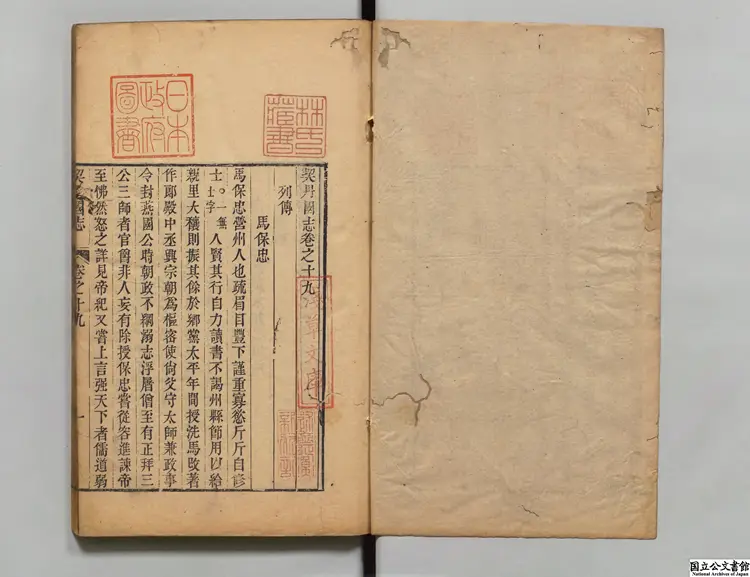 日本政府圖書
林氏藏書
淺草文庫
契丹國志卷之十九
列傳
馬保忠
馬保忠營州人也疏眉目豐下謹重寡慾斤斤自修
士。一無士字人賢其行自力讀書不謁州縣師用以給
親里大穰則振其餘於鄉黨太平年間授洗馬改著
作郎殿中丞興宗朝為樞密使尙父守太師兼政事
令封燕國公時朝政不綱溺志浮屠僧至有正拜三
公三師者官爵非人妄有除授保忠嘗從容進諫帝
至怫然怒之詳見帝紀又嘗上言强天下者儒道弱
契丹國志 卷之十九 一
国立公文書館
National Archives of Japan